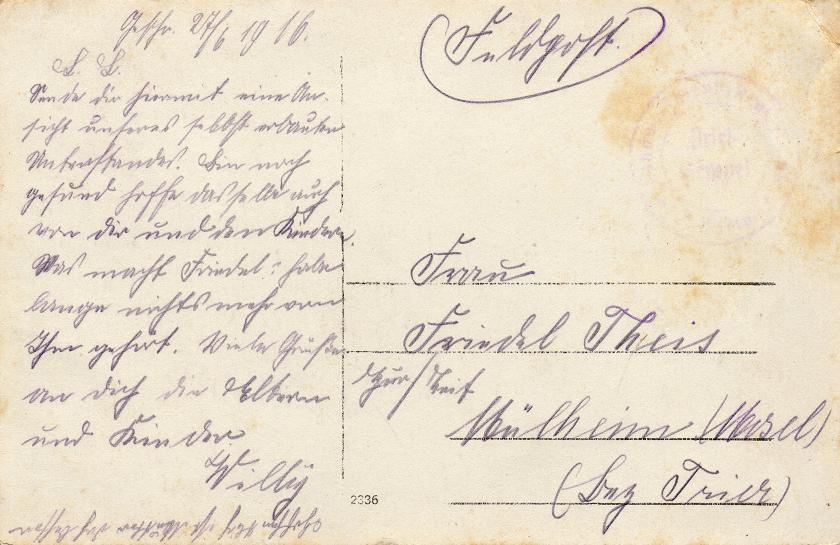 Geschr. 27/6 1916.
L. L.
Sende dir hiermit eine An-
sicht unseres selbst erbauten
Unterstandes. Bin noch
gesund hoffe dasselbe auch
von dir und den Kindern.
Was macht Friedel? habe
lange nichts mehr von
Ihm gehört. Viele Grüße
an dich die Eltern
und Kinder
Willy
Feldpost.
Frau
Friedel Theis
zur Zeit
Mülheim (Mosel)
(Bez Trier)
2336